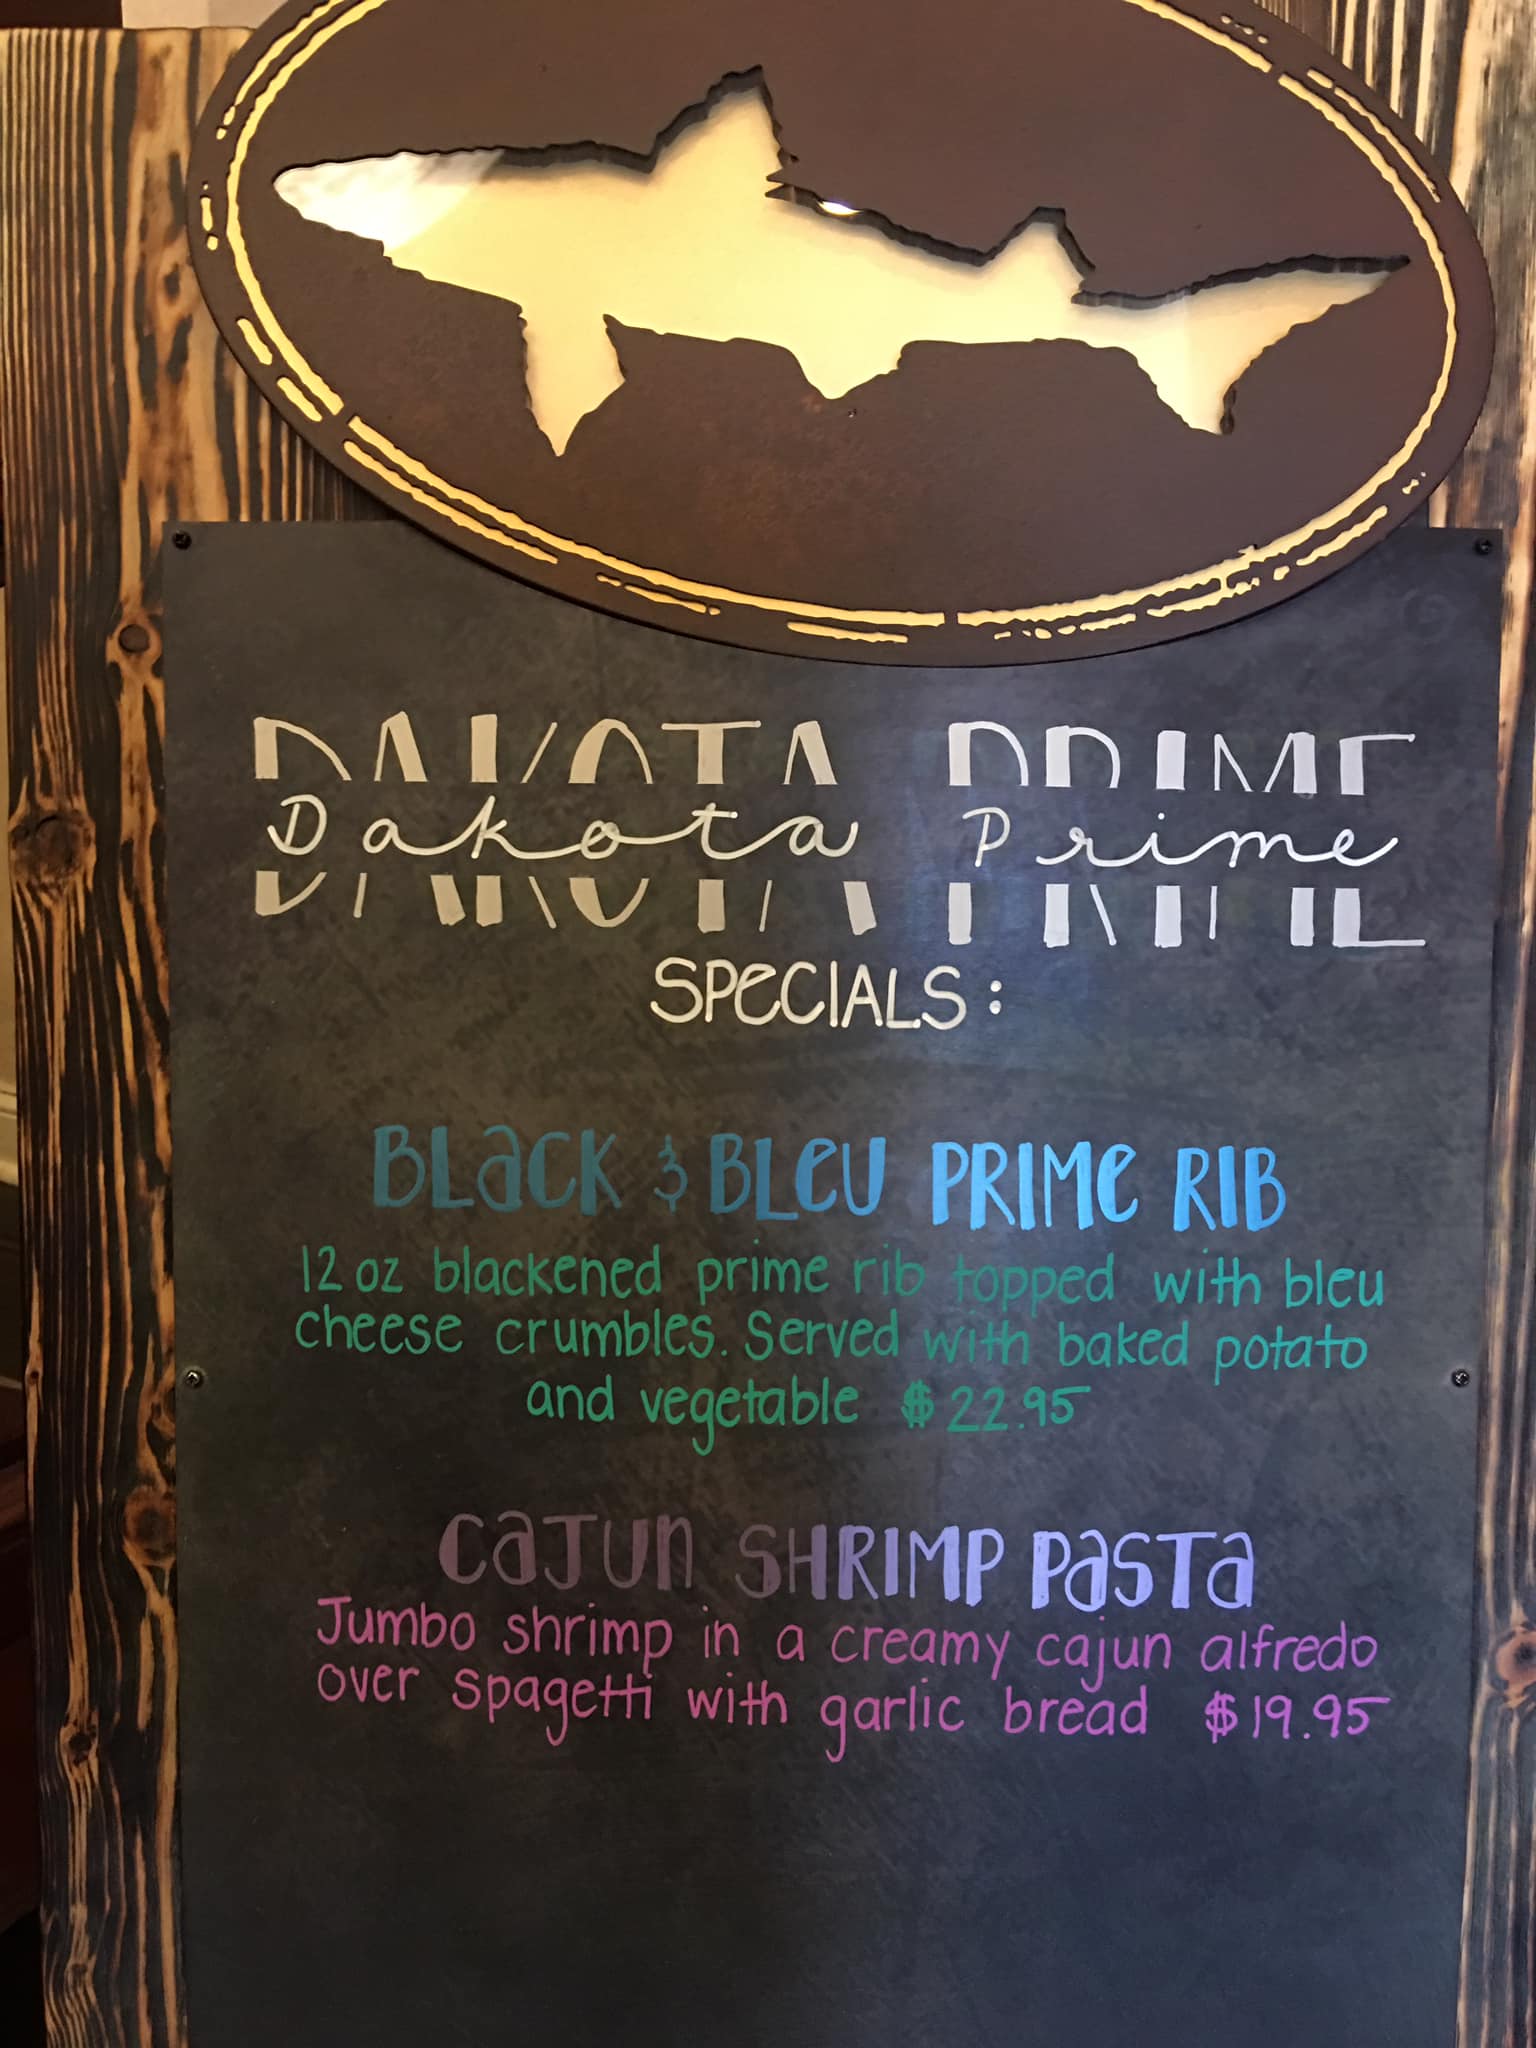 DAKOTA PRIME
Dakota Prime
SPECIALS:
BLACK & BLEU PRIME RIB
12 oz blackened prime rib topped with bleu
cheese crumbles. Served with baked potato
and vegetable $22.95
CAJUN SHRIMP PASTA
Jumbo shrimp in a creamy cajun alfredo
over spagetti with garlic bread $19.95